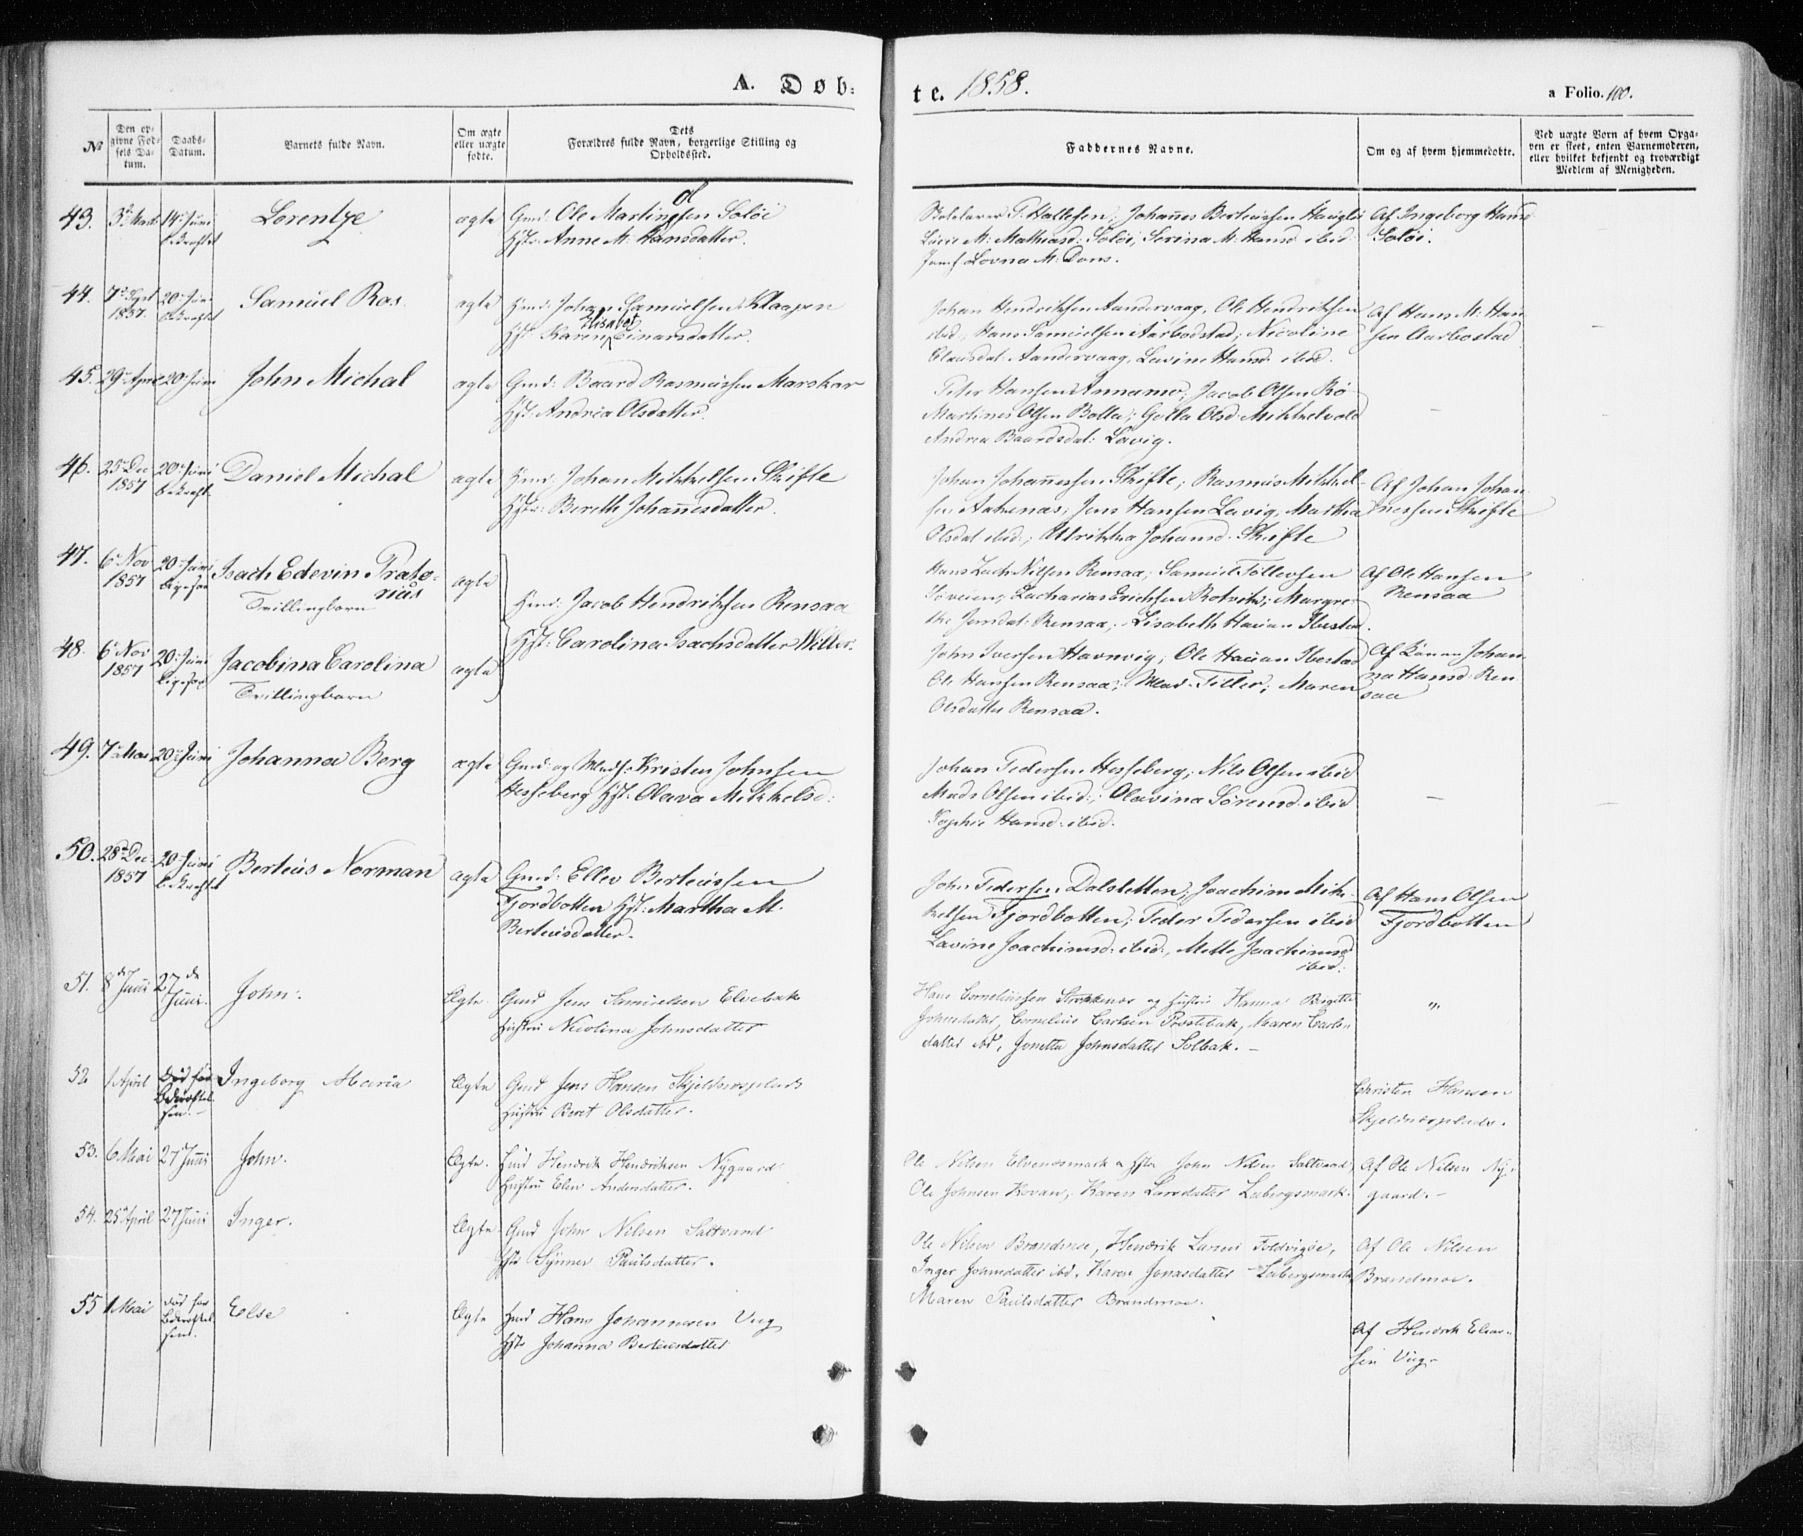 A. Døb-
te. 1858.
a Folio. 100.
№
Den op-
givne Fød-
sels Da-
tum.
Daabs-
Datum.
Barnets fulde Navn.
Om ægte
eller uægte
fødte.
Dets
Forældres fulde Navn, borgerlige Stilling og
Opholdssted.
Faddernes Navne.
Om og af hvem hjemmedøbte.
Ved uægte Børn af hvem Opga-
ven er skeet, enten Barnemoderen,
eller hvilket bekjendt og troværdigt
Medlem af Menigheden.
43. 14 Juni Lorentze ægte Gmd: Ole Martin Soløi
bekræftet Hst: Anne M: Hansdatter.
P: Hallesen; Johannes Berteussen
M: Mathiasd: Soløi; Serina M: Hansd: ibid:
Jomf: Lovna M: Dons.
Af Ingeborg Hansd:
Soløi.
44. 7de Sept 20 Juni Samuel Ras ægte Johan Samuelsen Klaapen
1857. bekræftet Hst: Karen Elisabet Einarsdatter.
Johan Hendriksen Aandervaag, Ole Hendriksen
ibid, Hans Samuelsen Aarbodstad; Nicoline
Clausdat: Aandervaag, Lavine Hansd: ibid.
Af Hans M: Han-
sen Aarbostad
45. 29 April 20 Juni John Michal ægte Gmd: Baard Rasmussen Marskar
Hst: Andrea Olsdatter.
Peter Hansen Annamo; Jacob Olsen Rø-
Martines Olsen Bolla; Golla Olsd: Mikkelvold
Andrea Baardsdat: Lavig.
–
46. 25 Dec 20 Juni Daniel Michal ægte Johan Mikkelsen Skifte
1857 bekræft. Hst: Bereth Johannesdatter.
Johan Johannessen Skifte; Rasmus Mikkel-
sen Aakenæs; Jens Hansen Lavig, Martha
Olsdat ibid; Ulrikka Johansd: Skifte
Af Johan Johan-
nessen Skifte
47. 6 Nov 20 Juni Isach Edevin Præto-
1857 ligesaa rius ægte
Tvillingbarn
Jacob Hendriksen Rensaa
Hst: Carolina Isachsdatter
Nilsen Rensaa; Samuel Tollevsen
Zacharias Erichsen Rotvik; Margre-
the Jensdat: Rensaa; Lisabeth Ibestad.
Af Ole Hansen
Rensaa
48. 6 Nov 20 Juni Jacobina Carolina
1857 ligesaa ægte
Tvillingbarn
John Iversen Havnvig; Ole Ibestad
Ole Hansen Rensaa; Mad. Maren
Olsdatter Rensaa.
Af Johan-
na Hansd: Ren-
saa
49. 20 Juni Johanna Berg ægte Gmd: og Kristen Johnsen
Hesseberg Hst: Olava Mikkelsd:
Johan Pedersen Hesseberg; Nils Olsen ibid
Mads Olsen ibid; Olavina Sørensd: ibid
Sophie Hansd: ibid.
–
50. 28de Dec 20 Juni Berteus Norman ægte Gmd: Ellev Berteussen
1857 bekræftet Fjordbotten Hst: Martha M.
Berteusdatter.
John Pedersen Dalsletten; Joachim Mik-
kelsen Fjordbotten; Peder Pedersen ibid
Lavine Joachimsd: ibid:, Mette Joachimsd
ibid:
Af Hans Olsen
Fjordbotten
51. 8 de Juni 27 de Juni. John. Ægte. Gmd Jens Samuelsen Elvebak
Hustru Nicolina Johnsdatter
Hans Corneliussen og Hustru Hanna Birgitte
Johnsdatter, Cornelius Carlsen Prestebak, Maren Carls-
datter ibd, Jonetta Johnsdatter Solbak. –
"
52 1 April Død før Ingeborg Maria Ægte Gmd Jens Hansen Skjeldnesplads
Bekræftel-
sen. – Hustru Beret Olsdatter.
Christen Hansen
Skjeldnesplads.
53. 6 Mai 27 Juni John. Ægte. Hendrik Hendriksen Nygaard
Hustru Elen Andersdatter.
Ole Nilsen Elvenesmark John Nilsen Saltvand;
Ole Johnsen Kovan; Karen Larsdatter Labergsmark.
Af Ole Nilsen Ny-
gaard. –
54. 25 April 27 Juni Inger. Ægte Gmd John Nilsen Saltvand
Hst: Synnev Paulsdatter.
Ole Nilsen Brandmoe, Hendrik Larsen Foldvigøe,
Inger Johnsdatter ibd. Karen Jonasdatter Labergsmark
Maren Paulsdatter Brandmoe.
Af Ole Nilsen
Brandmoe.
55 1 Mai død før Else Ægte Hans Johannesen Vug
Bekræftel-
sen. Hst: Johanna Berteusdatter
Af Hendrik
sen Vug-